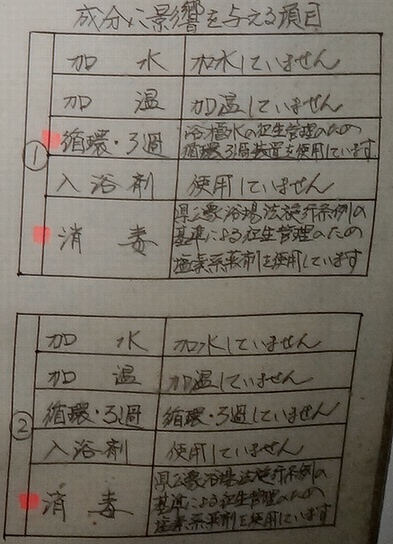 成分に影響を与える項目
①
加水 加水していません
加温 加温していません
循環・ろ過 浴槽水の衛生管理のため
循環ろ過装置を使用しています
入浴剤 使用していません
消毒 県公衆浴場法施行条例の
基準による衛生管理のため
塩素系薬剤を使用しています
②
加水 加水していません
加温 加温していません
循環・ろ過 循環・ろ過していません
入浴剤 使用していません
消毒 県公衆浴場法施行条例の
基準による衛生管理のため
塩素系薬剤を使用しています